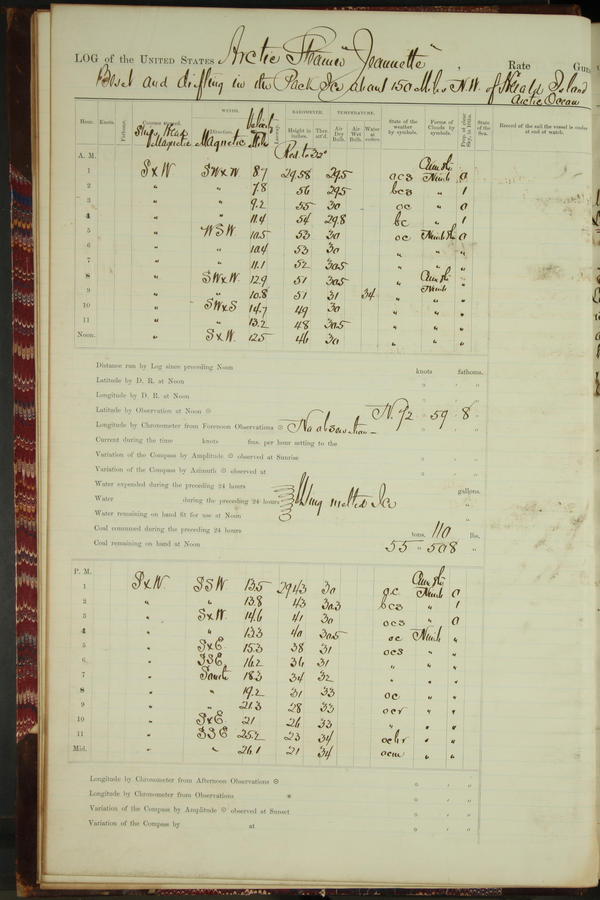 LOG of the UNITED STATES Arctic Steamer "Jeannette" Rate Guns
Beset and drifting in the Pack Ice about 150 Miles N.W. of Herald Island
Arctic Ocean
WINDS. BAROMETER. TEMPERATURE.
Hour. Knots. Fathoms. Courses steered. Direction. Velocity Miles Leeway. Height in inches. Ther. att'd. Air Dry Bulb. Air Wet Bulb. Water at surface. State of the weather by symbols. Forms of Clouds by symbols. Prop. of clear Sky, in 10ths. State of the Sea. Record of the sail the vessel is under at end of watch.
Ship's Head Magnetic Magnetic
A. M. Red. to 32°
1 SxW SWxW 8.7 29.58 29.5 ocs Cum St Nimb 0
2 " " 7.8 56 29.5 bcs " 1
3 " " 9.2 55 30 oc " 0
4 " " 11.4 54 29.8 bc " 1
5 " WSW 10.5 53 30 oc Nimb St 0
6 " " 10.4 53 30 " " "
7 " " 11.1 52 30.5 " " "
8 " SWxW 12.9 51 30.5 " Cum St Nimb "
9 " " 10.8 51 31 34 " " "
10 " SWxS 14.7 49 30 " " "
11 " " 13.2 48 30.5 " " "
Noon. " SxW 12.5 46 30 " " "
Distance run by Log since preceding Noon knots fathoms.
Latitude by D. R. at Noon ° ′ ″
Longitude by D. R. at Noon ° ′ ″
Latitude by Observation at Noon ⊙ N. 72 59 8
Longitude by Chronometer from Forenoon Observations ⊙ No observation
Current during the time knots fms. per hour setting to the
Variation of the Compass by Amplitude ⊙ observed at Sunrise
Variation of the Compass by Azimuth ⊙ observed at
Water expended during the preceding 24 hours gallons.
Water during the preceding 24 hours Using melted Ice "
Water remaining on hand fit for use at Noon "
Coal consumed during the preceding 24 hours tons. 110 lbs.
Coal remaining on hand at Noon 55 " 508 "
P. M.
1 SxW SSW 13.5 29.43 30 oc Cum St Nimb 0
2 " " 13.8 43 30.3 bcs " 1
3 " SxW 14.6 41 30 ocs " 0
4 " " 13.3 40 30.5 oc Nimb "
5 " SxE 15.3 38 31 ocs " "
6 " SSE 16.2 36 31 " " "
7 " South 18.3 34 32 " " "
8 " " 19.2 31 33 oc " "
9 " " 21.3 28 33 ocr " "
10 " SxE 21 26 33 " " "
11 " SSE 25.2 23 34 " "
Mid. " " 26.1 21 34 ocm " "
Longitude by Chronometer from Afternoon Observations ⊙ ° ′ ″
Longitude by Chronometer from Observations * ° ′ ″
Variation of the Compass by Amplitude ⊙ observed at Sunset ° ′ ″
Variation of the Compass by at ° ′ ″